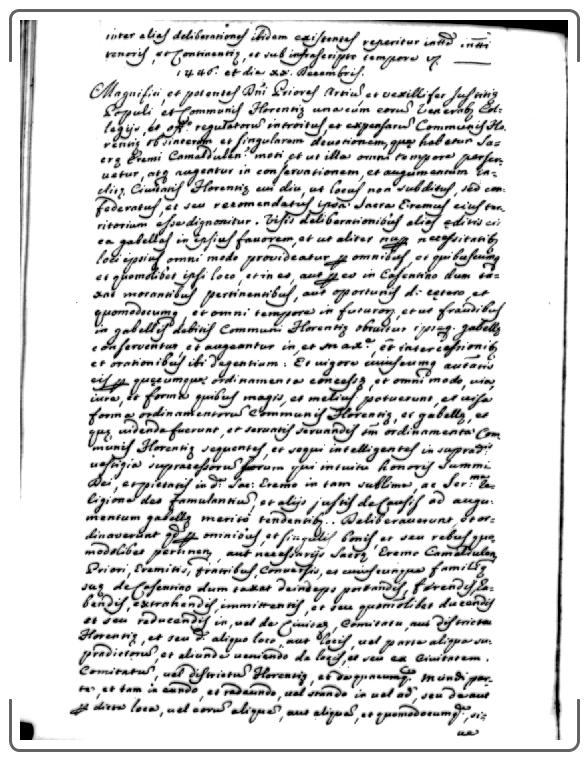 inter alias deliberationes ibidem existentes reperitur intt̃
tenoris, et Continentię, et sub infrascripto tempore vȝ
1446. et die xx. Decembris.
Magnifici, et potentes Dñi Priores Artiũ et vexillifer Justitię
Populi et Communis Florentię una cum eorũ Venerab. Col-
legijs, et off. regulatorũ introitus et expensarũ Communis Flo-
rentię ob sinceram et singularem devotionem, quę habetur Sa-
crę Eremi Camaldulen. moti et ut illa omni tempore perser-
vetur, atq̃ augeatur in conservationem, et augumentum In-
clitę Civitatis Florentię cui diu, ut locus non subditus, sed con-
federatus, et seu recomendatus ipsa Sacra Eremus eiusq̃ ter-
ritorium esse dignoscitur. Visis deliberationibus alias editis cir
ca gabellas in ipsius favorem, et ut aliter necessitatib.
loci ipsius omni modo provideatur ꝑ omnibus, et quibuscunq̃
et quomodolibet ipsi loco, et in eo, aut ꝑ eo in Casentino dum ta-
xat morantibus pertinentibus, aut oportunis d. cętero, et
quomodocumq̃, et omni tempore in futurũ, et ut fraudibus
in gabellis debitis Communi Florentię obvietur ipsęq̃ gabellę
conserventur et augeantur in et max.ᵉ, et intercessionib.
et orationibus ibi degentium: Et vigore cuiuscumq̃ auttatis
eis ꝑ quęcumque ordinamenta concessę, et omni modo, via,
iure, et forma quibus magis, et melius potuerunt, et visa
forma ordinamentorũ Communis Florentię, et gabellę, et
quę videnda fuerunt, et servatis servandis sm̃ ordinamenta Com
munis Florentię sequentes, et sequi intelligentes in suprad.ᵗⁱˢ
vestigia supracessorũ suorum qui intuitu honoris Summi
Dei, et pietatis in d. Sac. Eremo in tam sublime, ac Ser.ᵐᵃ Re-
ligione Deo famulantiũ, et alijs justis de Causis ad augu-
mentum gabellę merito tendentib.. Deliberaverunt, et or-
dinaverunt qd̃ ꝑ omnibus, et singulis bonis, et seu rebus quo-
modolibet pertinen. aut necessarijs Sacrę Eremo Camaldulen.
Priori, Eremitis, fratribus, Conversis, et cuiuscunque familię
suę de Casentino dum taxat deinceps portandis, ferendis, ha-
bendis, extrahendis, immittentis, et seu quomolibet ducendis
et seu reducendis in, vel de Civitate, Comitatu, aut districtu
Florentię, et seu d. aliquo loco, aut locis, vel parte aliqua su-
pradictorũ, et aliunde veniendo de locis, et seu ex Civitatem.
Comitatus, vel districtus Florentię, et de quacumq̃ mundi par-
te, et tam in eundo, et redeundo, vel stando in vel ad, seu de aut
ꝑ dicta loca, vel eorũ aliqua, aut aliquẽ, et quomodocumq̃, si-
ve